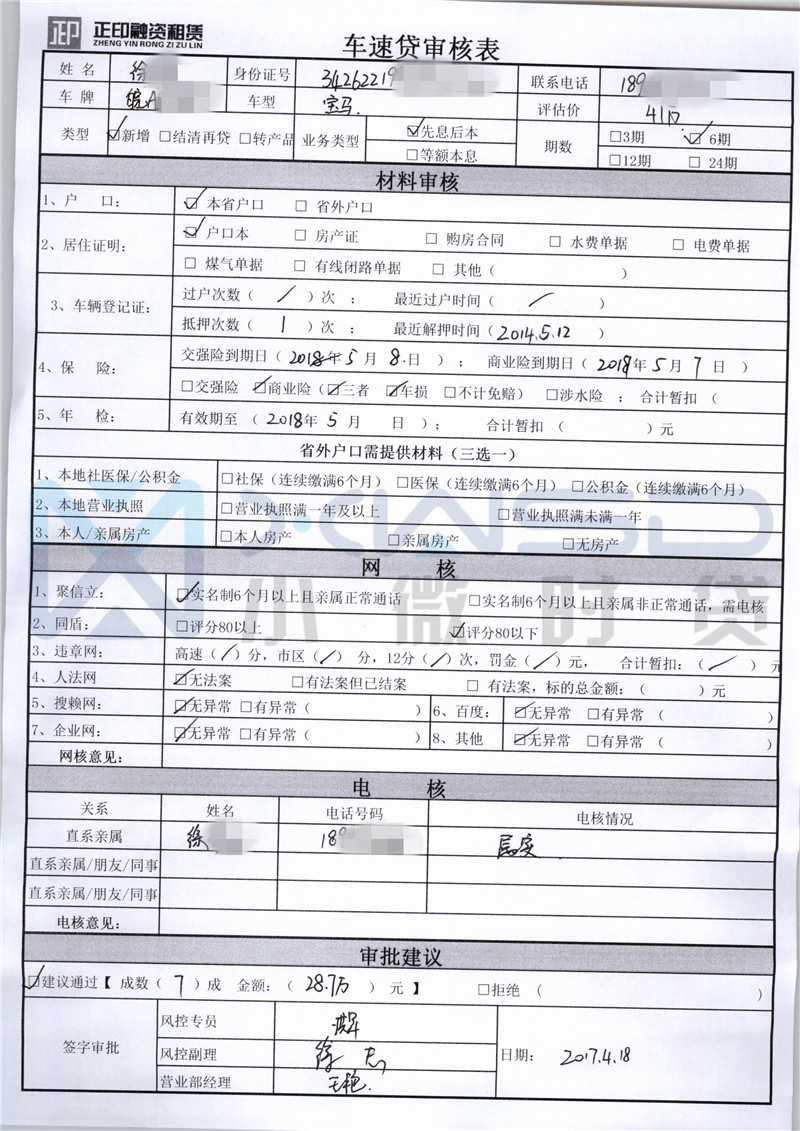 正印融资租赁
ZHENG YIN RONG ZI ZU LIN
车速贷审核表
姓 名 徐 身份证号 34262219 联系电话 189
车 牌 皖A 车型 宝马 评估价 41万
类型 ☑新增 □结清再贷 □转产品 业务类型 ☑先息后本 □等额本息 期数 □3期 ☑6期 □12期 □24期
材料审核
1、户 口: ☑本省户口 □省外户口
2、居住证明: ☑户口本 □房产证 □购房合同 □水费单据 □电费单据
□煤气单据 □有线闭路单据 □其他( )
3、车辆登记证: 过户次数( / )次 ; 最近过户时间( / )
抵押次数( 1 )次 ; 最近解押时间(2014.5.12 )
4、保 险: 交强险到期日( 2018年5月8日 ) ; 商业险到期日( 2018年5月7日 )
□交强险 ☑商业险(☑三者 ☑车损 □不计免赔) □涉水险 ; 合计暂扣 (
5、年 检: 有效期至 ( 2018年 5 月 日 ); 合计暂扣 ( )元
省外户口需提供材料(三选一)
1、本地社医保/公积金 □社保(连续缴满6个月) □医保(连续缴满6个月) □公积金(连续缴满6个月)
2、本地营业执照 □营业执照满一年及以上 □营业执照满未满一年
3、本人/亲属房产 □本人房产 □亲属房产 □无房产
XWSD
小微时贷
网 核
1、聚信立: ☑实名制6个月以上且亲属正常通话 □实名制6个月以上且亲属非正常通话,需电核
2、同盾: □评分80以上 ☑评分80以下
3、违章网: 高速( / )分,市区( / ) 分,12分( / )次,罚金( / )元, 合计暂扣:( / ) 元
4、人法网: ☑无法案 □有法案但已结案 □ 有法案,标的总金额:( )元
5、搜赖网: ☑无异常 □有异常( ) 6、百度: ☑无异常 □有异常 ( )
7、企业网: ☑无异常 □有异常( ) 8、其他 ☑无异常 □有异常 ( )
网核意见:
电 核
关系 姓名 电话号码 电核情况
直系亲属 徐 189
直系亲属/朋友/同事
直系亲属/朋友/同事
电核意见:
审批建议
☑建议通过【 成数( 7 )成 金额:( 28.7万 ) 元 】 □拒绝 ( )
签字审批 风控专员
风控副理 徐志
营业部经理 王艳
日期: 2017.4.18